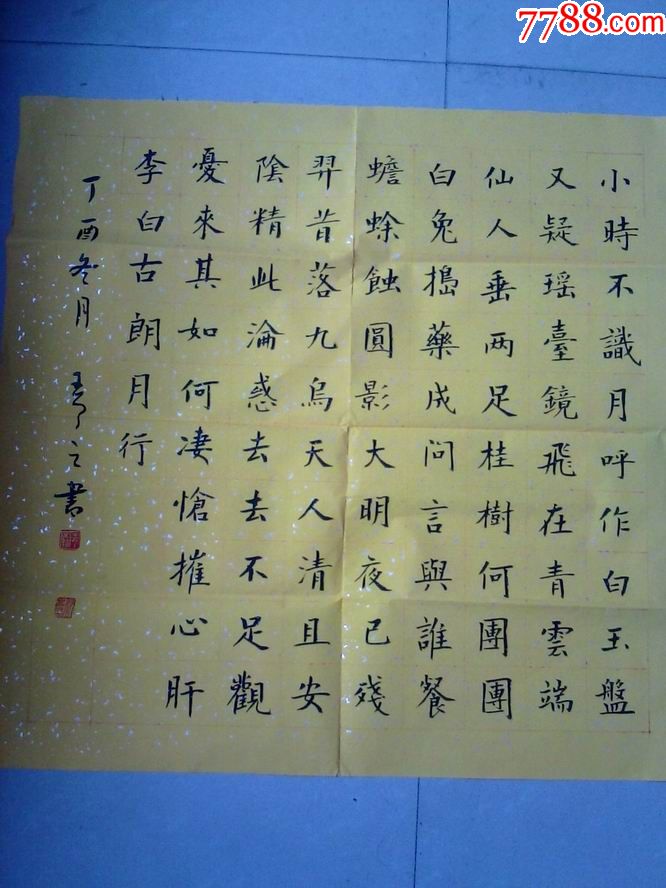 7788.com
小時不識月呼作白玉盤
又疑瑶臺鏡飛在青雲端
仙人垂两足桂樹何團團
白兔搗藥成問言與誰餐
蟾蜍蝕圓影大明夜已殘
羿昔落九烏天人清且安
陰精此淪惑去去不足觀
憂來其如何凄愴摧心肝
李白古朗月行
丁酉冬月 之書